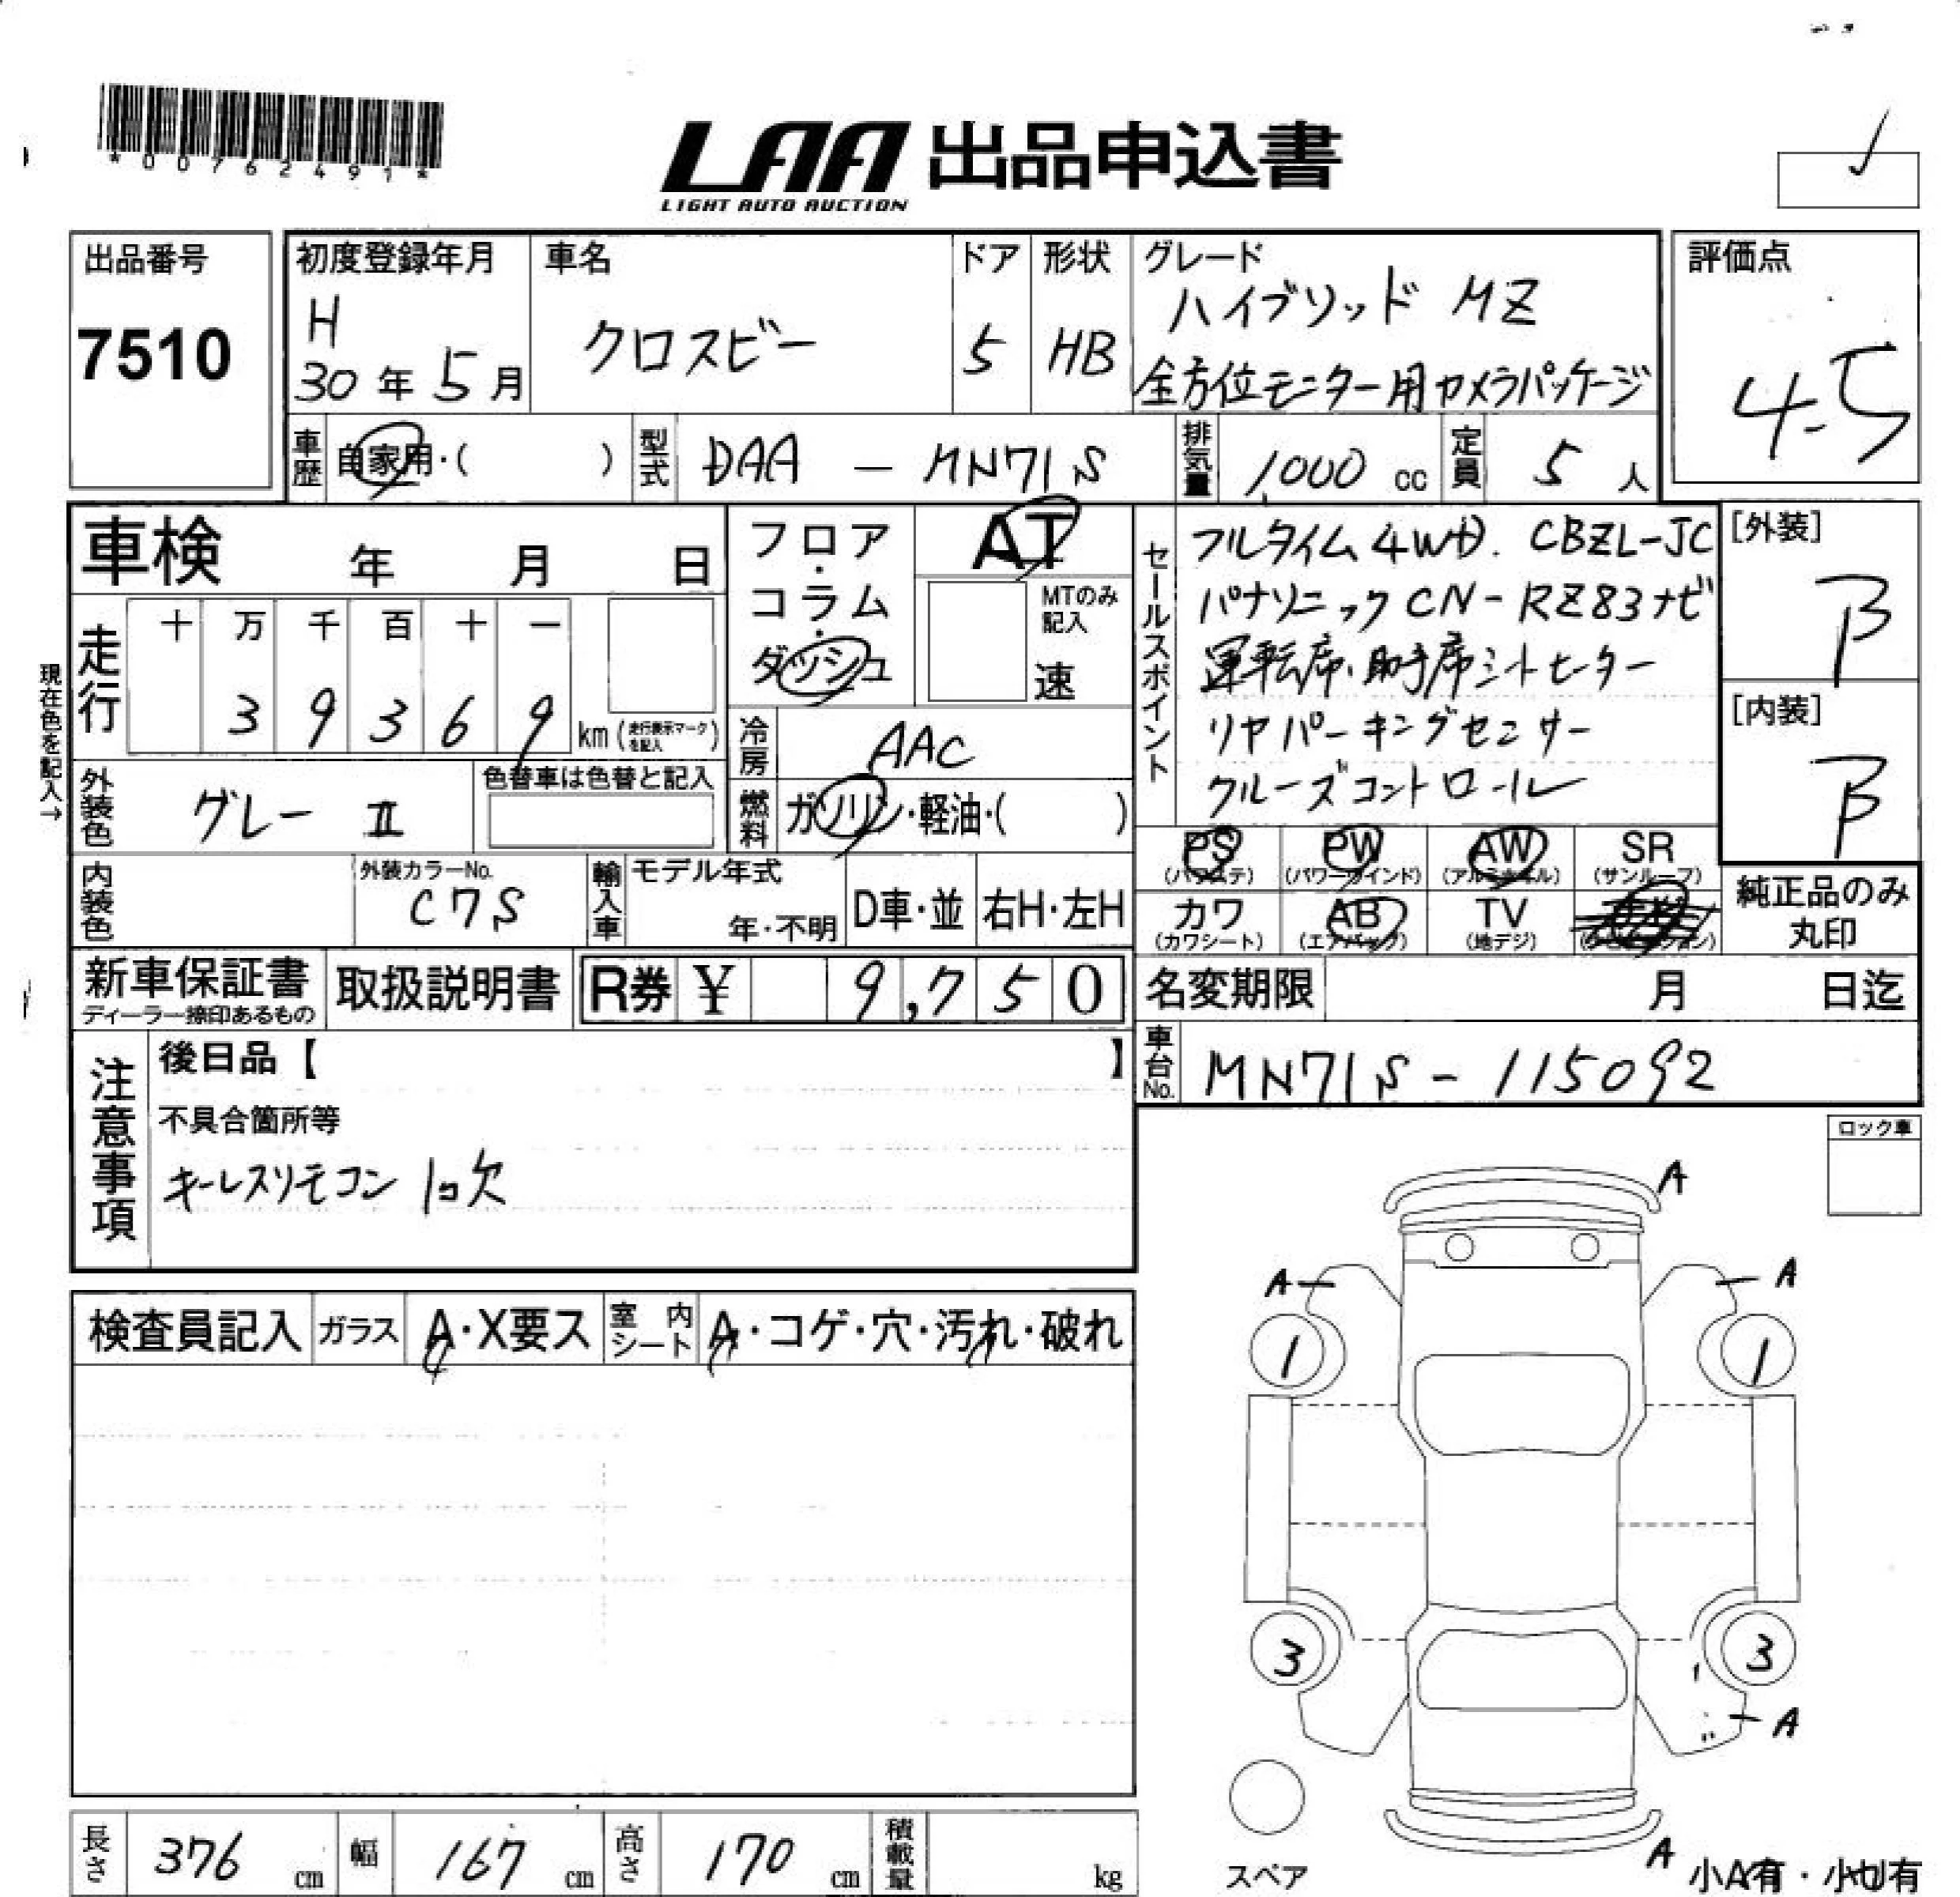 *00762491*
LAA 出品申込書
LIGHT AUTO AUCTION
出品番号
7510
初度登録年月
H
30年5月
車名
クロスビー
ドア
5
形状
HB
グレード
ハイブリッド MZ
全方位モニター用カメラパッケージ
評価点
4.5
車歴
自家用・( )
型式
DAA - MN71S
排気量
1,000 cc
定員
5人
車検 年 月 日
フロア・コラム・ダッシュ
AT
MTのみ記入
速
走行
十 万 千 百 十 一
3 9 3 6 9 km(走行表示マークを記入)
現在色を記入→
冷房
AAC
外装色
グレーⅡ
色替車は色替と記入
燃料
ガソリン・軽油・( )
内装色
外装カラーNo.
C7S
輸入車
モデル年式
年・不明
D車・並
右H・左H
セールスポイント
フルタイム4WD. CBZL-JC
パナソニックCN-RZ83ナビ
運転席・助手席シートヒーター
リヤパーキングセンサー
クルーズコントロール
[外装]
B
[内装]
B
PS (パワステ)
PW (パワーウインド)
AW (アルミホイル)
SR (サンルーフ)
カワ (カワシート)
AB (エアバック)
TV (地デジ)
純正品のみ丸印
新車保証書
ディーラー捺印あるもの
取扱説明書
R券 ¥ 9,750
名変期限 月 日迄
車台No.
MN71S - 115092
注意事項
後日品【 】
不具合箇所等
キーレスリモコン 1コ欠
ロック車
検査員記入
ガラス
A・X要ス
室内シート
A・コゲ・穴・汚れ・破れ
A
A
A
1
1
3
3
A
A
スペア
小A有・小U有
長さ
376 cm
幅
167 cm
高さ
170 cm
積載量
kg